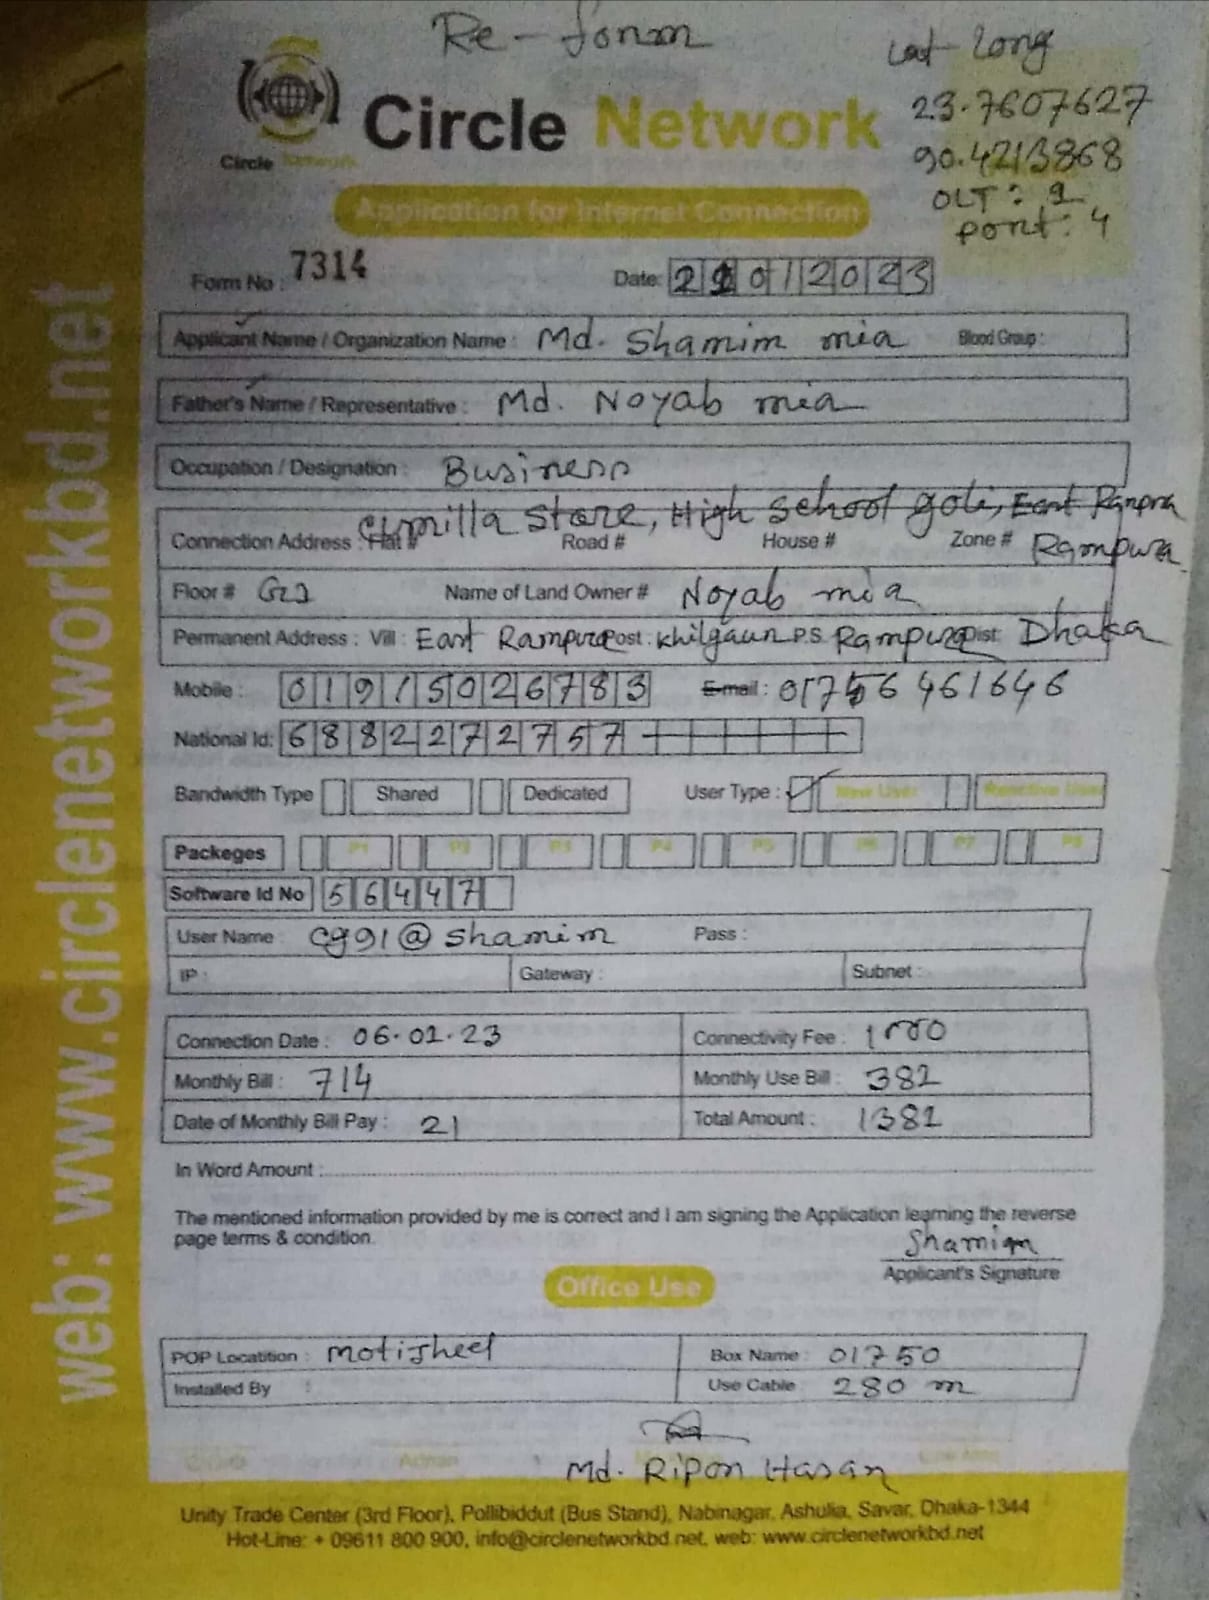 Re-form
Lat Long
23.7607627
90.4213868
OLT: 1
port: 4
Circle Network
Circle Network
Application for Internet Connection
Form No : 7314
Date: 22012023
Applicant Name / Organization Name : Md. Shamim mia Blood Group :
Father's Name / Representative : Md. Noyab mia
Occupation / Designation : Business
Cumilla Store, High School goli, East Rampura
Connection Address : Flat # Road # House # Zone # Rampura
Floor # Name of Land Owner # Noyab mia
Permanent Address : Vill : East Rampura Post : Khilgaun P.S. Rampura Dist: Dhaka
Mobile : 01915026783 Email : 01756461646
National Id: 6882272757
Bandwidth Type Shared Dedicated User Type : New User Reactive User
Packeges P1 P2 P3 P4 P5 P6 P7 P8
Software Id No 56447
User Name : cg91@shamim Pass :
IP : Gateway : Subnet :
Connection Date : 06.02.23 Connectivity Fee : 1000
Monthly Bill : 714 Monthly Use Bill : 382
Date of Monthly Bill Pay : 21 Total Amount : 1382
In Word Amount :
The mentioned information provided by me is correct and I am signing the Application learning the reverse
page terms & condition.
Shamim
Applicant's Signature
Office Use
POP Locatition : Motijheel Box Name : 01750
Installed By : Use Cable 280 m
Admin
Md. Ripon Hasan
Unity Trade Center (3rd Floor), Pollibiddut (Bus Stand), Nabinagar, Ashulia, Savar, Dhaka-1344
Hot-Line: + 09611 800 900, info@circlenetworkbd.net, web: www.circlenetworkbd.net
web: www.circlenetworkbd.net